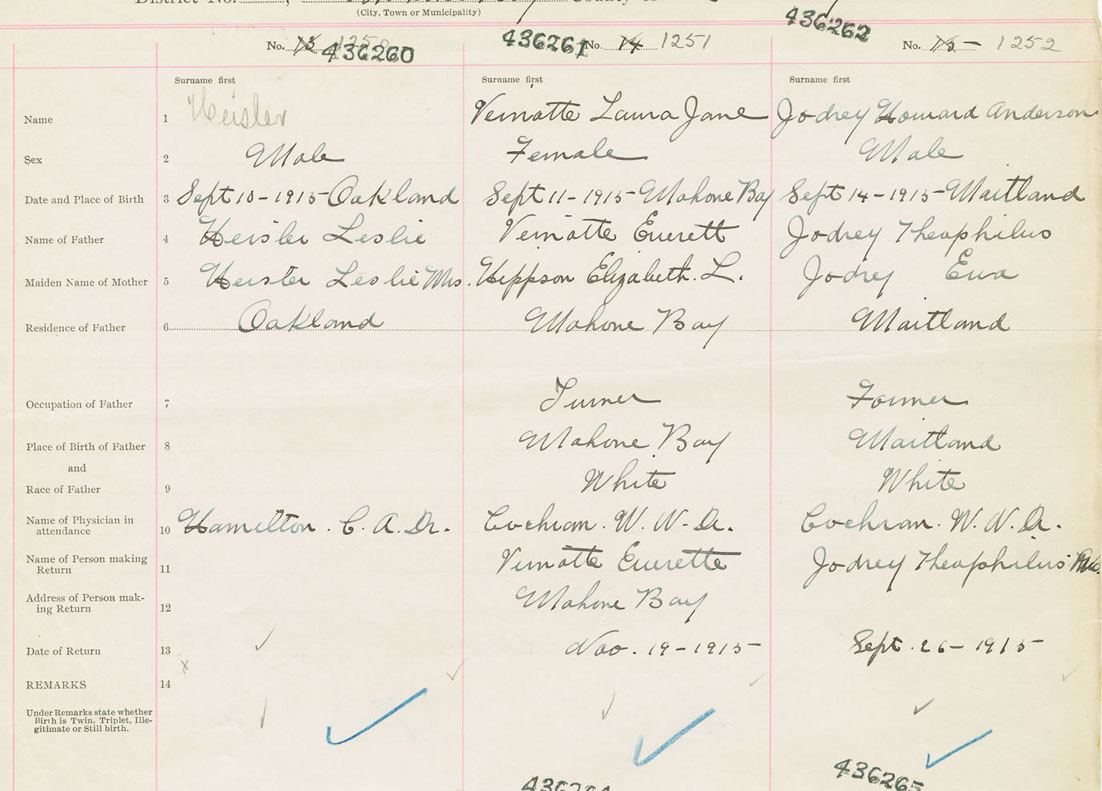 District No.
(City, Town or Municipality)
436260 436261 436262
No. 13 125 No. 14 1251 No. 15 1252
Surname first Surname first Surname first
Name 1 Heisler Veinotte Laura Jane Jodrey Howard Anderson
Sex 2 Male Female Male
Date and Place of Birth 3 Sept 10-1915-Oakland Sept 11-1915-Mahone Bay Sept 14-1915-Maitland
Name of Father 4 Heisler Leslie Veinotte Everett Jodrey Theophilus
Maiden Name of Mother 5 Heisler Leslie Mrs. Heppson Elizabeth. L. Jodrey Eva
Residence of Father 6 Oakland Mahone Bay Maitland
Occupation of Father 7 Turner Farmer
Place of Birth of Father 8 Mahone Bay Maitland
and
Race of Father 9 White White
Name of Physician in
attendance 10 Hamilton. C. A. Dr. Cochran. W. N. Dr. Cochran. W. N. Dr.
Name of Person making
Return 11 Veinotte Everette Jodrey Theophilus Mrs.
Address of Person mak-
ing Return 12 Mahone Bay
Date of Return 13 Nov. 19-1915- Sept. 26-1915-
REMARKS 14
Under Remarks state whether
Birth is Twin, Triplet, Ille-
gitimate or Still birth.
436265